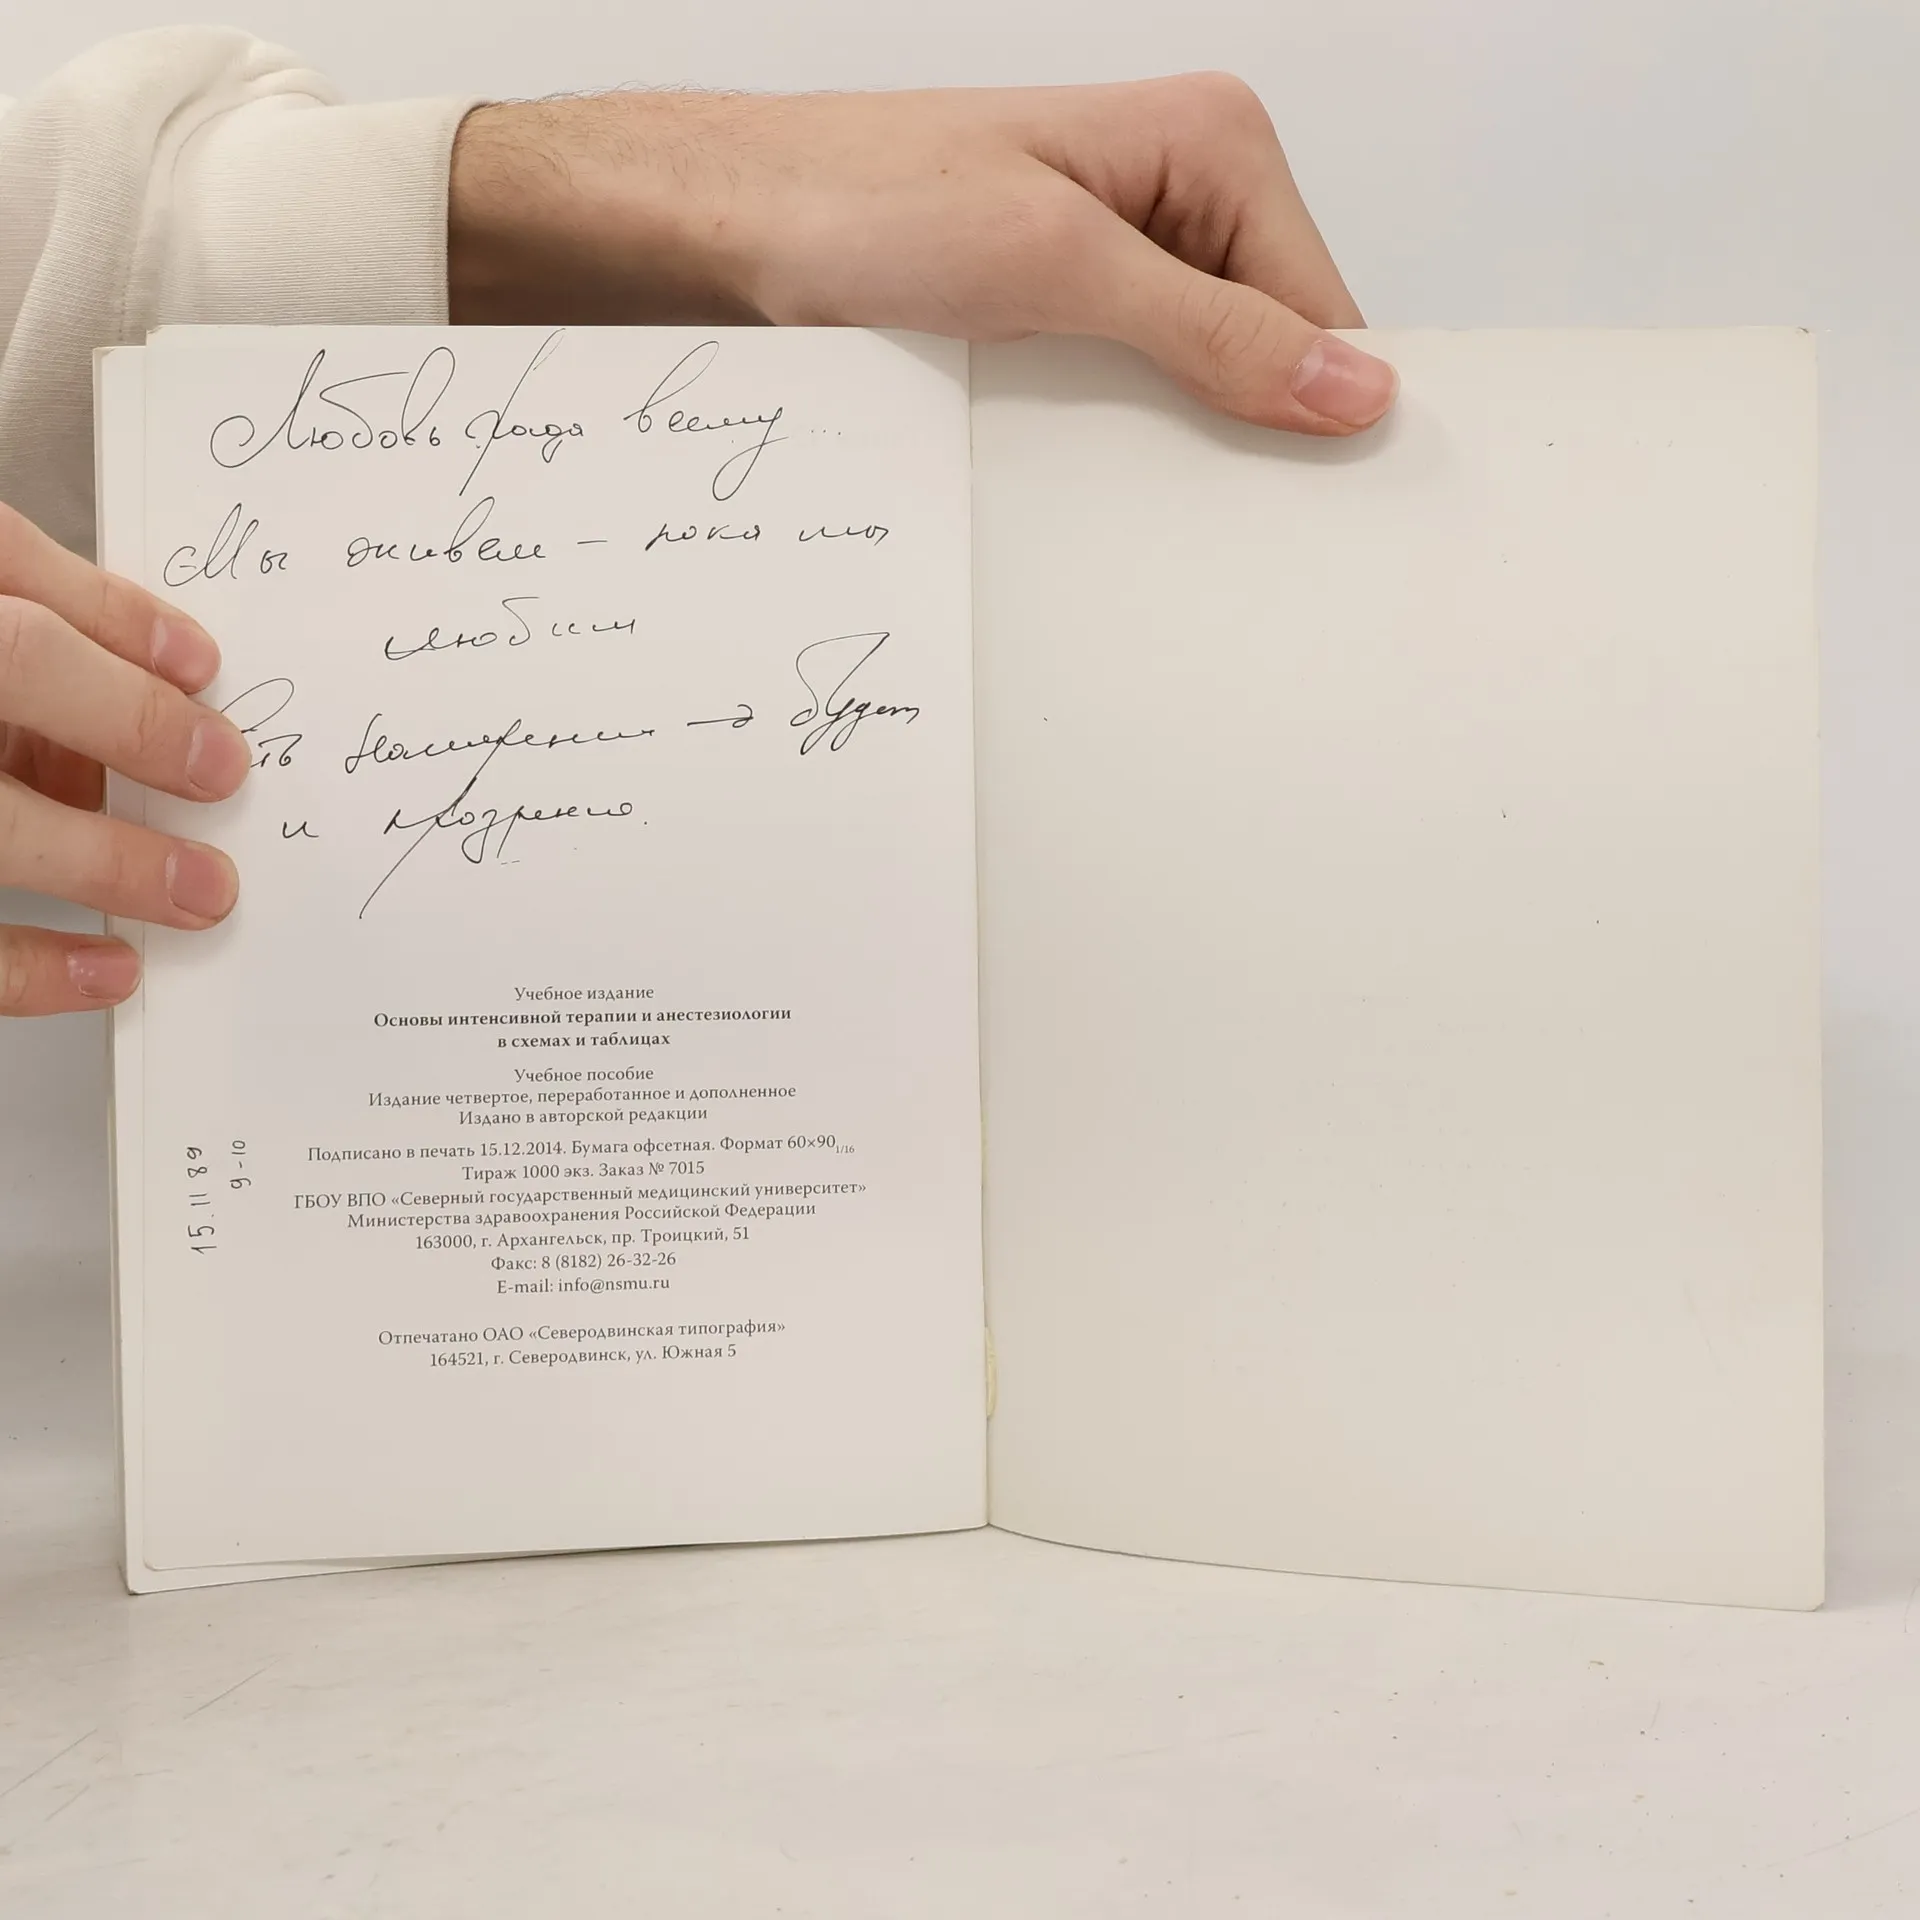 Любовь ради всему...
Мы живем — пока мы
любим
Есть намерения → будет
и прозрение.
Учебное издание
Основы интенсивной терапии и анестезиологии
в схемах и таблицах
Учебное пособие
Издание четвертое, переработанное и дополненное
Издано в авторской редакции
Подписано в печать 15.12.2014. Бумага офсетная. Формат 60×90 1/16
Тираж 1000 экз. Заказ № 7015
ГБОУ ВПО «Северный государственный медицинский университет»
Министерства здравоохранения Российской Федерации
163000, г. Архангельск, пр. Троицкий, 51
Факс: 8 (8182) 26-32-26
E-mail: info@nsmu.ru
Отпечатано ОАО «Северодвинская типография»
164521, г. Северодвинск, ул. Южная 5
15.11 89
9-10